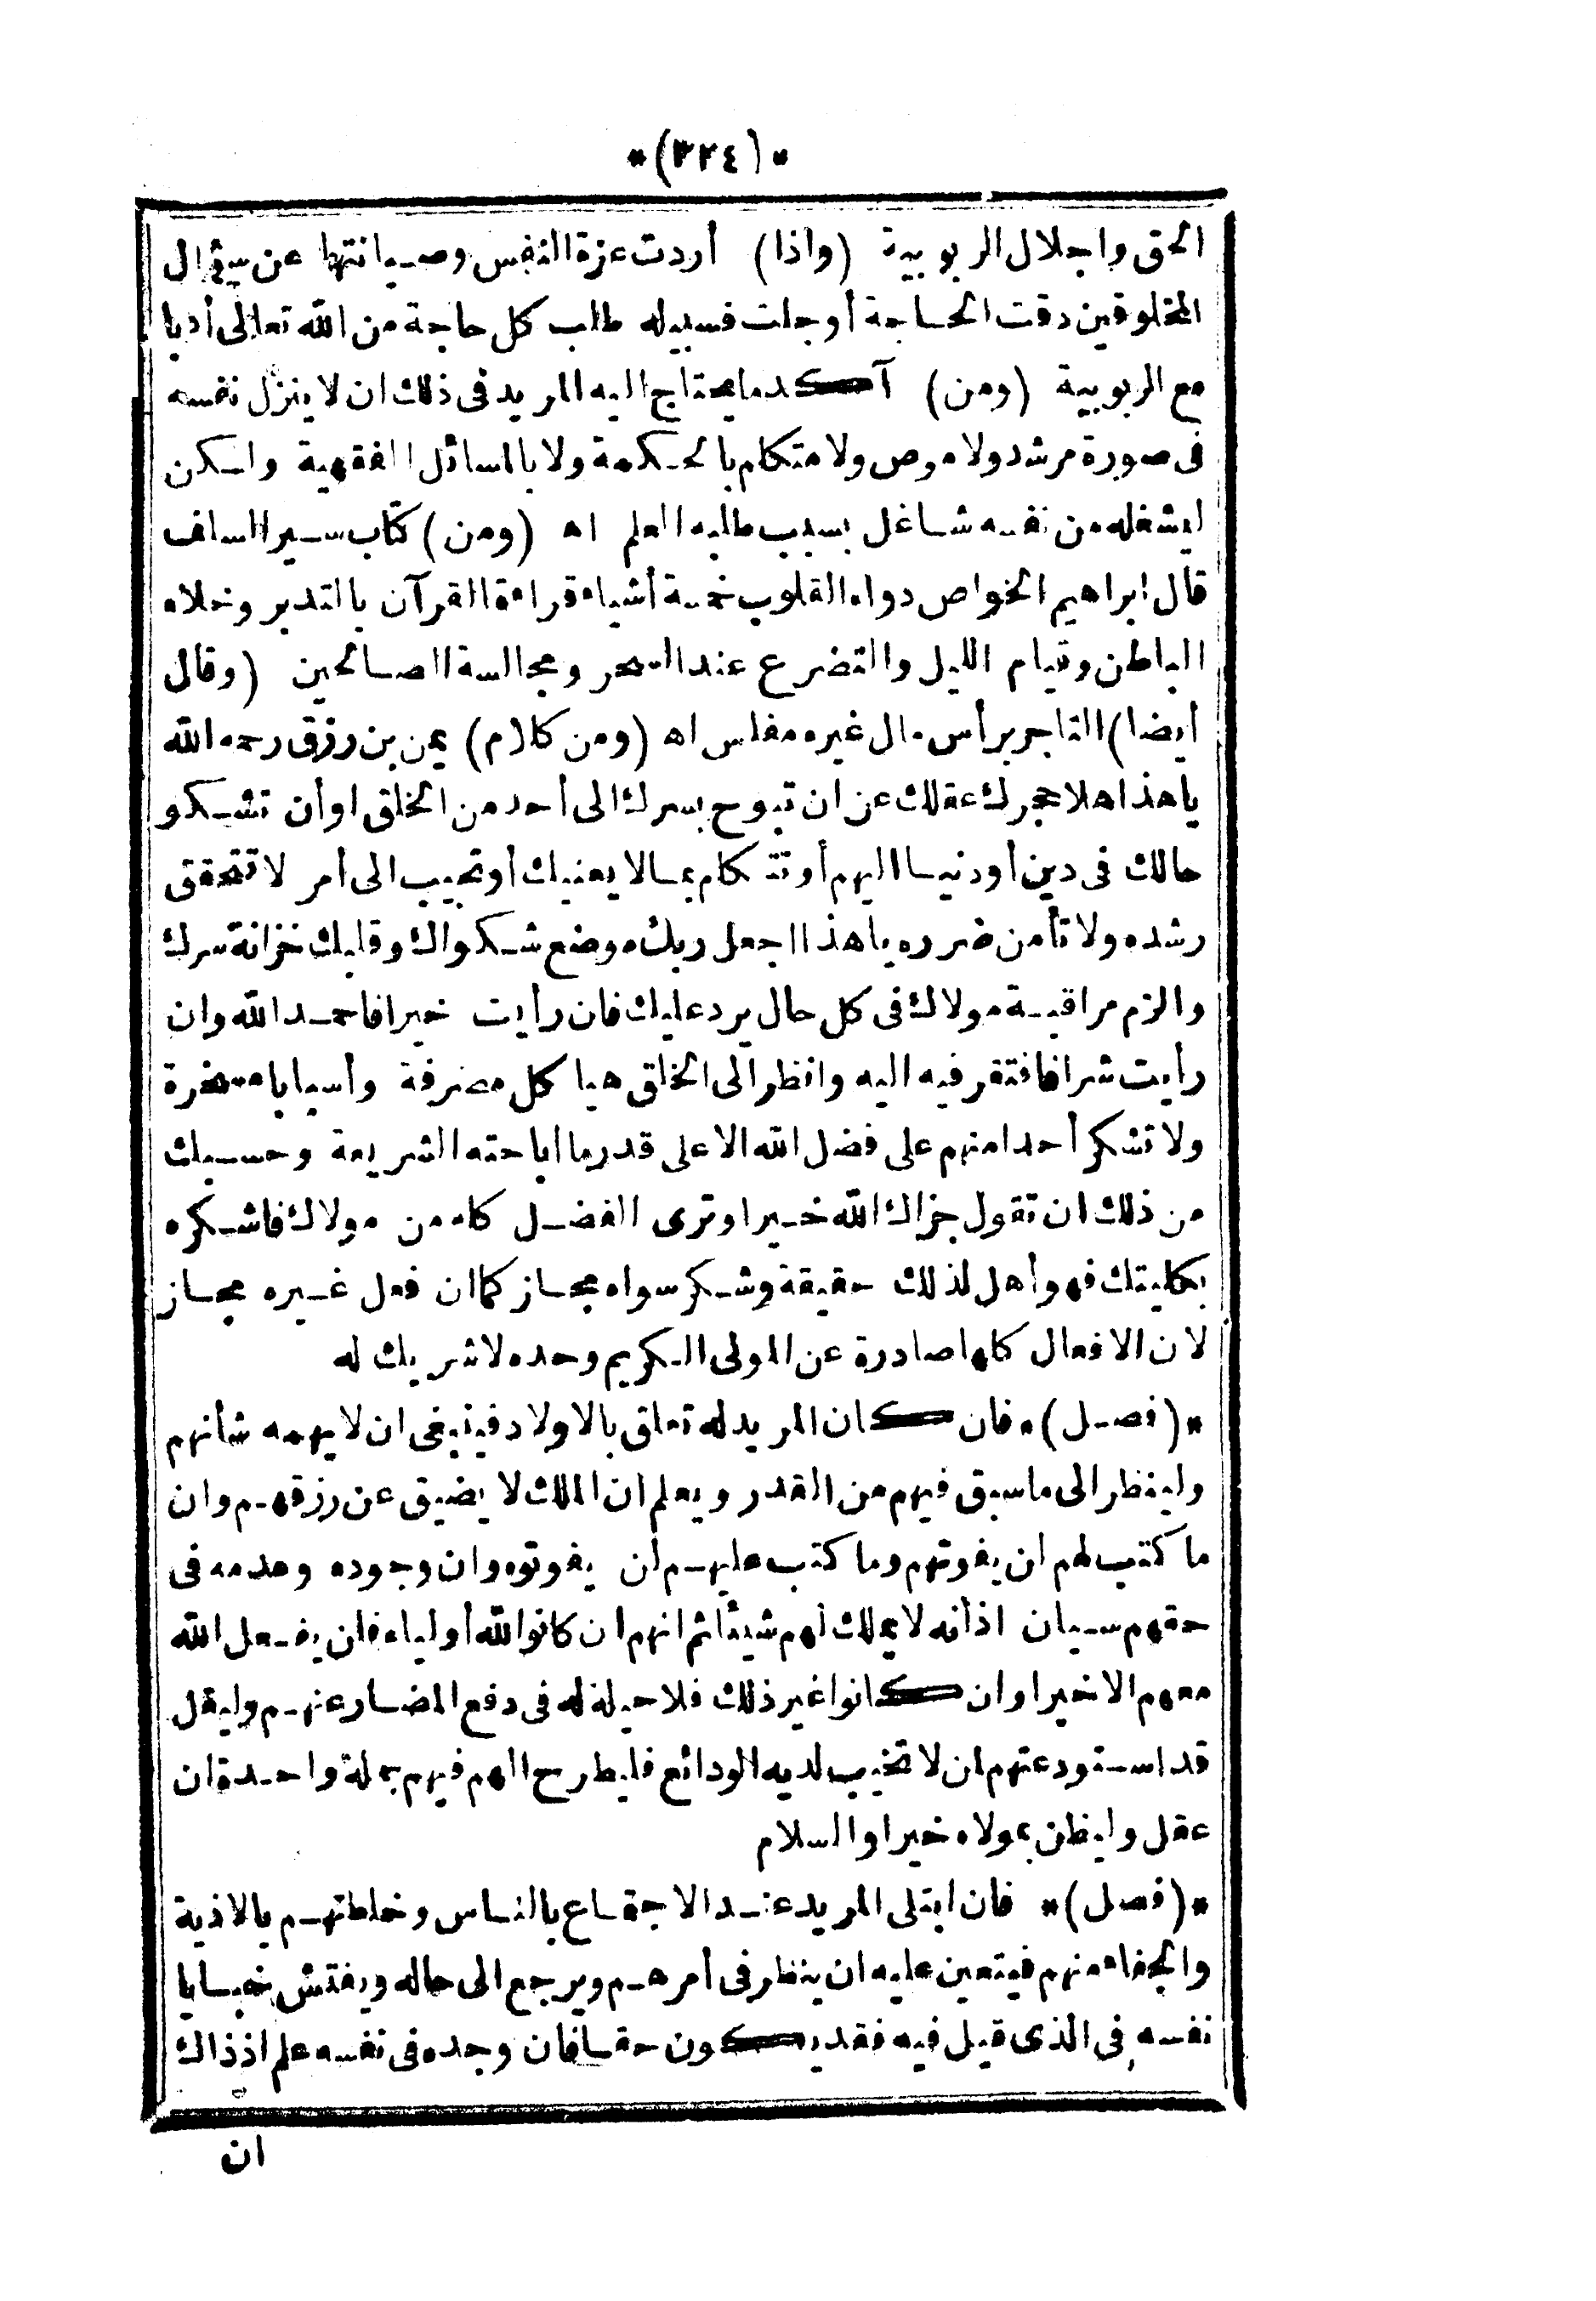 *(٣٢٤)*
الحق واجلال الربوبية (واذا) أردت عزة النفس وصيانتها عن سؤال
المخلوقين دقت الحاجة أوجلت فسبيله طلب كل حاجة من الله تعالى أدبا
مع الربوبية (ومن) آكد ما يحتاج اليه المريد فى ذلك ان لا ينزل نفسه
فى صورة مرشد ولا موص ولا متكلم بالحكمة ولا بالمسائل الفقهية ولكن
ليشغله من نفسه شاغل بسبب طلبه العلم اه (ومن) كتاب سير السلف
قال ابراهيم الخواص دواء القلوب خمسة أشياء قراءة القرآن بالتدبر وخلاء
الباطن وقيام الليل والتضرع عند السحر ومجالسة الصالحين (وقال
أيضا) التاجر برأس مال غيره مفلس اه (ومن كلام) يمن بن رزق رحمه الله
يا هذا هلا حجرك عقلك عن ان تبوح بسرك الى أحد من الخلق او أن تشكو
حالك فى دين أو دنيا اليهم أو تتكلم بما لا يعنيك أو تجيب الى أمر لا تتحقق
رشده ولا تأمن ضرره يا هذا اجعل ربك موضع شكواك وقلبك خزانة سرك
والزم مراقبة مولاك فى كل حال يرد عليك فان رأيت خيرا فاحمد الله وان
رأيت شرا فافتقر فيه اليه وانظر الى الخلق هياكل مصرفة وأسبابا مسخرة
ولا تشكر أحدا منهم على فضل الله الا على قدر ما اباحته الشريعة وحسبك
من ذلك ان تقول جزاك الله خيرا وترى الفضل كله من مولاك فاشكره
بكليتك فهو أهل لذلك حقيقة وشكر سواه مجاز كما ان فعل غيره مجاز
لان الافعال كلها صادرة عن المولى الكريم وحده لا شريك له
*(فصل)* فان كان المريد له تعلق بالاولاد فينبغى ان لا يهمه شأنهم
ولينظر الى ما سبق فيهم من القدر ويعلم ان الملك لا يضيق عن رزقهم وان
ما كتب لهم ان يفوتهم وما كتب عليهم أن يفوتوه وان وجوده وعدمه فى
حقهم سيان اذ أنه لا يملك لهم شيئا ثم انهم ان كانوا لله أولياء فلن يفعل الله
معهم الا خيرا وان كانوا غير ذلك فلا حيلة له فى دفع المضار عنهم وليقل
قد استودعتهم لمن لا تخيب لديه الودائع فليطرح الهم فيهم جملة واحدة ان
عقل وليظن بمولاه خيرا والسلام
*(فصل)* فان ابتلى المريد عند الاجتماع بالناس وخلطتهم بالاذية
والجفاء منهم فيتعين عليه ان ينظر فى أمرهم ويرجع الى حاله ويفتش خبايا
نفسه فى الذى قيل فيه فقد يكون حقا فان وجده فى نفسه علم اذ ذاك
ان